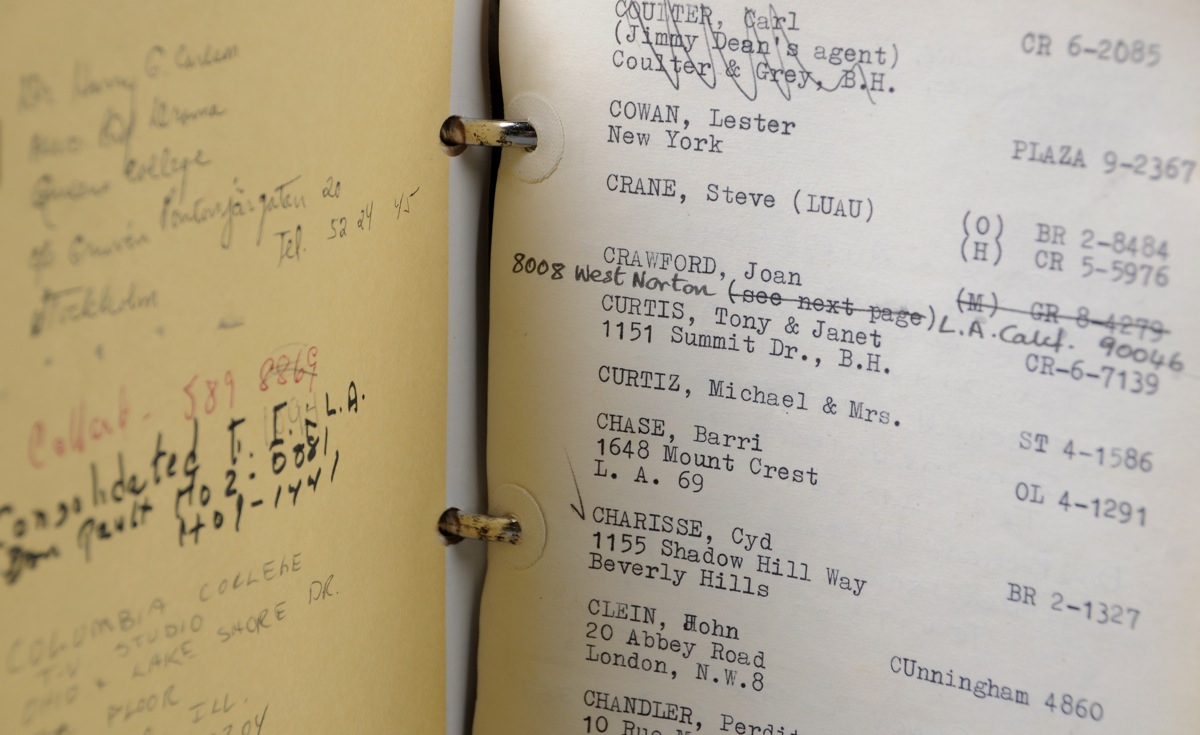 Dr Harry G. Carlson
Queens College
Pontonjärgatan 20
Tel. 52 24 45
Stockholm
Collect - 589 8869
Consolidated T. F. L.A.
Don Fault HO 2-0081,
HO 9-1441,
COLUMBIA COLLEGE
T.V. STUDIO
OHIO & LAKE SHORE DR.
FLOOR
ILL.
COULTER, Carl CR 6-2085
(Jimmy Dean's agent)
Coulter & Grey, B.H.
COWAN, Lester
New York PLAZA 9-2367
CRANE, Steve (LUAU)
(O) BR 2-8484
(H) CR 5-5976
CRAWFORD, Joan
8008 West Norton (see next page) (M) GR 8-4279
L.A. Calif. 90046
CURTIS, Tony & Janet
1151 Summit Dr., B.H. CR-6-7139
CURTIZ, Michael & Mrs.
ST 4-1586
CHASE, Barri
1648 Mount Crest OL 4-1291
L. A. 69
CHARISSE, Cyd
1155 Shadow Hill Way
Beverly Hills BR 2-1327
CLEIN, John
20 Abbey Road
London, N.W.8 CUnningham 4860
CHANDLER,
10 Rue